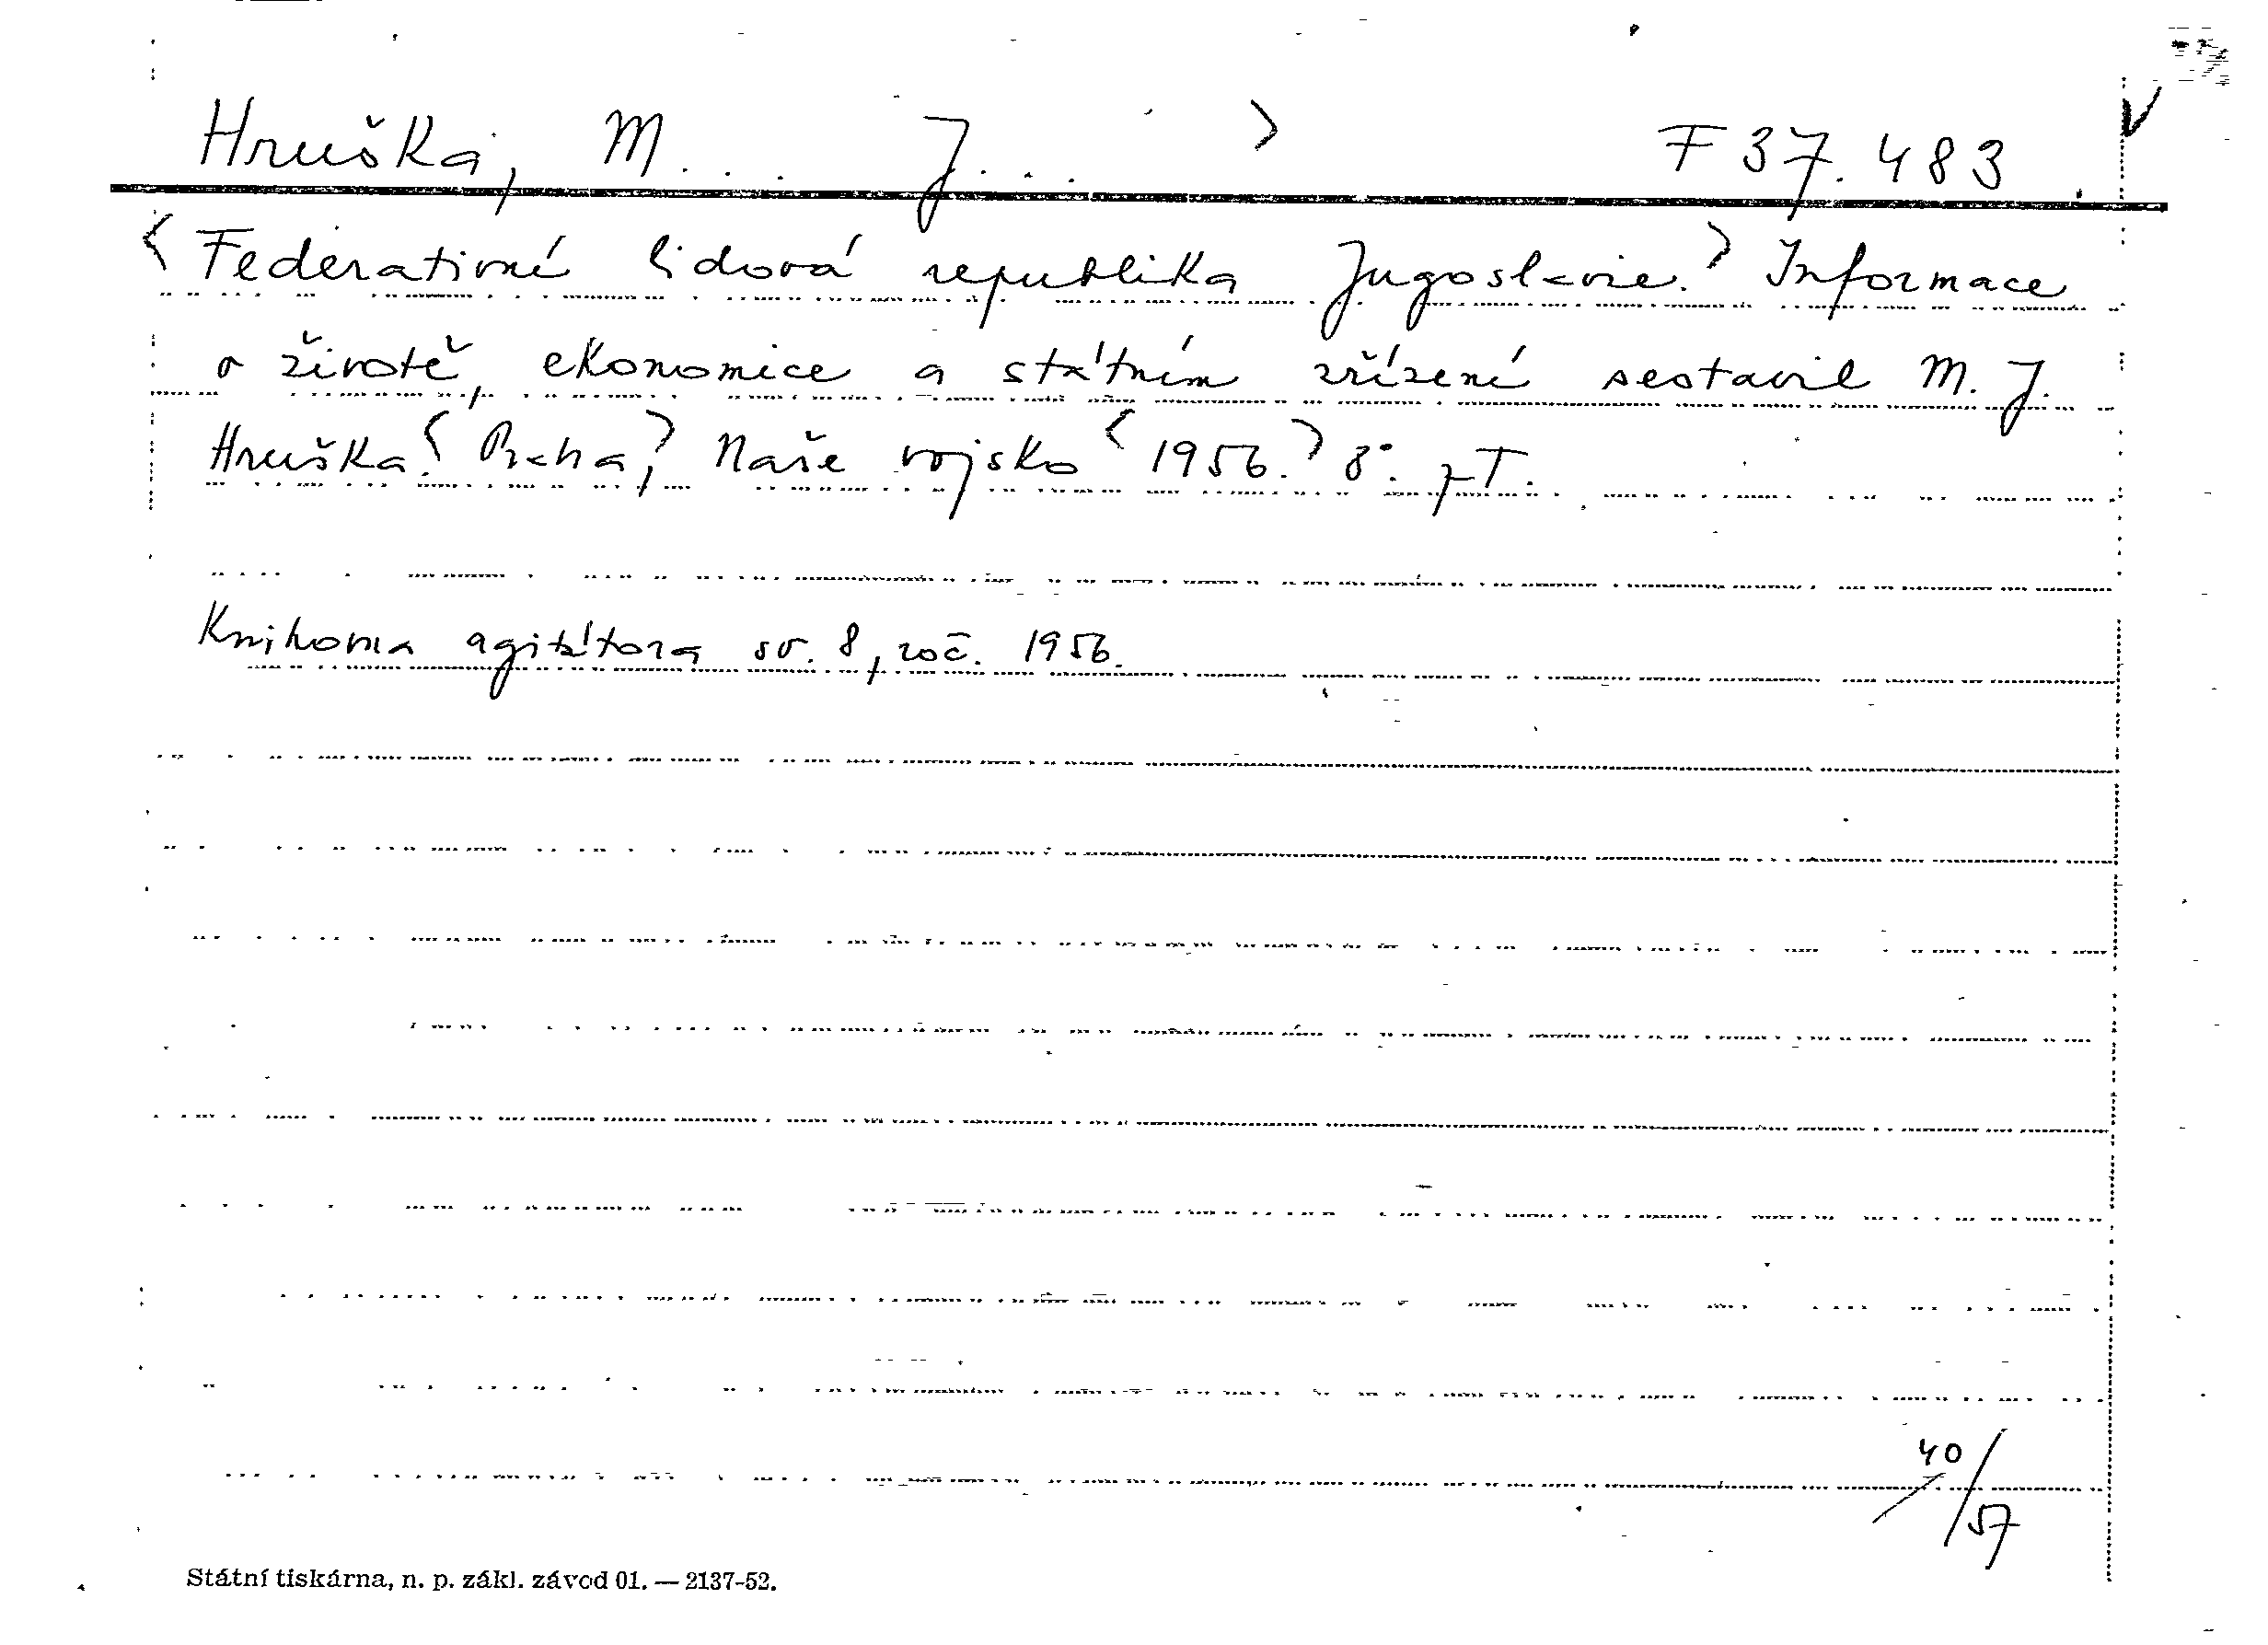 Hruška, M... J... > F 37.483.
<Federativní lidová republika Jugoslavie.> Informace
o životě, ekonomice a státním zřízení sestavil M. J.
Hruška. <Praha,> Naše vojsko <1956.> 8°. 7T.
Knihovna agitátora sv. 8, roč. 1956.
40/57
Státní tiskárna, n. p. zákl. závod 01. — 2137-52.